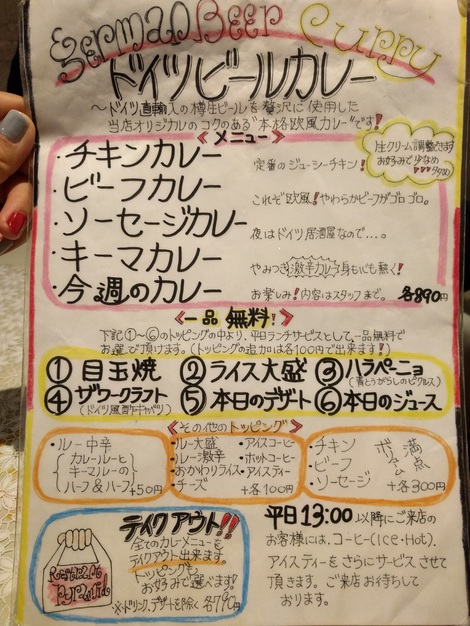 German Beer Curry
ドイツビールカレー
～ドイツ直輸入の樽生ビールを贅沢に使用した
当店オリジナルのコクのある"本格欧風カレー"です!
《メニュー》
生クリーム調整できます
お好みで少なめ
・チキンカレー 定番のジューシーチキン!
・ビーフカレー これぞ欧風!やわらかビーフがゴロゴロ。
・ソーセージカレー 夜はドイツ居酒屋なので…。
・キーマカレー やみつき激辛カレー身も心も熱く!
・今週のカレー お楽しみ!内容はスタッフまで。 各890円
《一品 無料!》
下記①~⑥のトッピングの中より、平日ランチサービスとして、一品無料で
お選び頂けます。(トッピングの追加は各100円で出来ます!)
①目玉焼 ②ライス大盛 ③ハラペーニョ
(青とうがらしのピクルス)
④ザワークラフト ⑤本日のデザート ⑥本日のジュース
(ドイツ風酢漬キャベツ)
《その他のトッピング》
・ルー中辛
(カレールーと
キーマルーの
ハーフ&ハーフ) +50円
・ルー大盛
・ルー激辛
・おかわりライス
・チーズ
・アイスコーヒー
・ホットコーヒー
・アイスティー
+各100円
・チキン
・ビーフ
・ソーセージ
ボリューム満点
+各300円
テイクアウト!!
全てのカレーメニューを
テイクアウト出来ます。
トッピングも
お好みで選べます!
※ドリンク、デザートを除く 各790円
Restaurant
Pyramid
平日13:00以降にご来店の
お客様には、コーヒー(ICE・Hot)、
アイスティーをさらにサービスさせて
頂きます。ご来店お待ちして
おります。